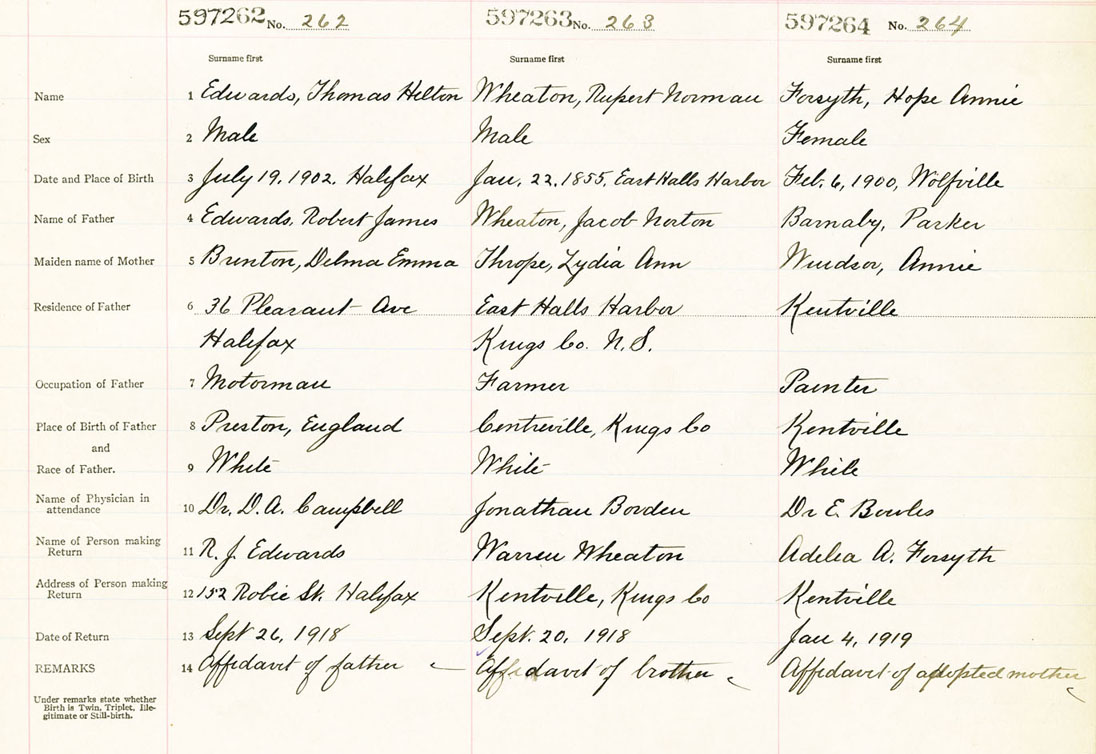 597262 No. 262 597263 No. 263 597264 No. 264
Surname first Surname first Surname first
Name 1 Edwards, Thomas Hilton Wheaton, Rupert Norman Forsyth, Hope Annie
Sex 2 Male Male Female
Date and Place of Birth 3 July 19, 1902, Halifax Jan. 22, 1855, East Halls Harbor Feb. 6, 1900, Wolfville
Name of Father 4 Edwards, Robert James Wheaton, Jacob Norton Barnaby, Parker
Maiden name of Mother 5 Brunton, Delma Emma Thrope, Lydia Ann Windsor, Annie
Residence of Father 6 36 Pleasant Ave East Halls Harbor Kentville
Halifax Kings Co. N.S.
Occupation of Father 7 Motorman Farmer Painter
Place of Birth of Father 8 Preston, England Centreville, Kings Co Kentville
and
Race of Father. 9 White White White
Name of Physician in
attendance 10 Dr. D.A. Campbell Jonathan Borden Dr E. Bowles
Name of Person making
Return 11 R. J. Edwards Warren Wheaton Adelia A. Forsyth
Address of Person making
Return 12 152 Robie St. Halifax Kentville, Kings Co Kentville
Date of Return 13 Sept 26, 1918 Sept. 20, 1918 Jan 4, 1919
REMARKS 14 Affidavit of father Affidavit of brother Affidavit of adopted mother
Under remarks state whether
Birth is Twin, Triplet, Ille-
gitimate or Still-birth.